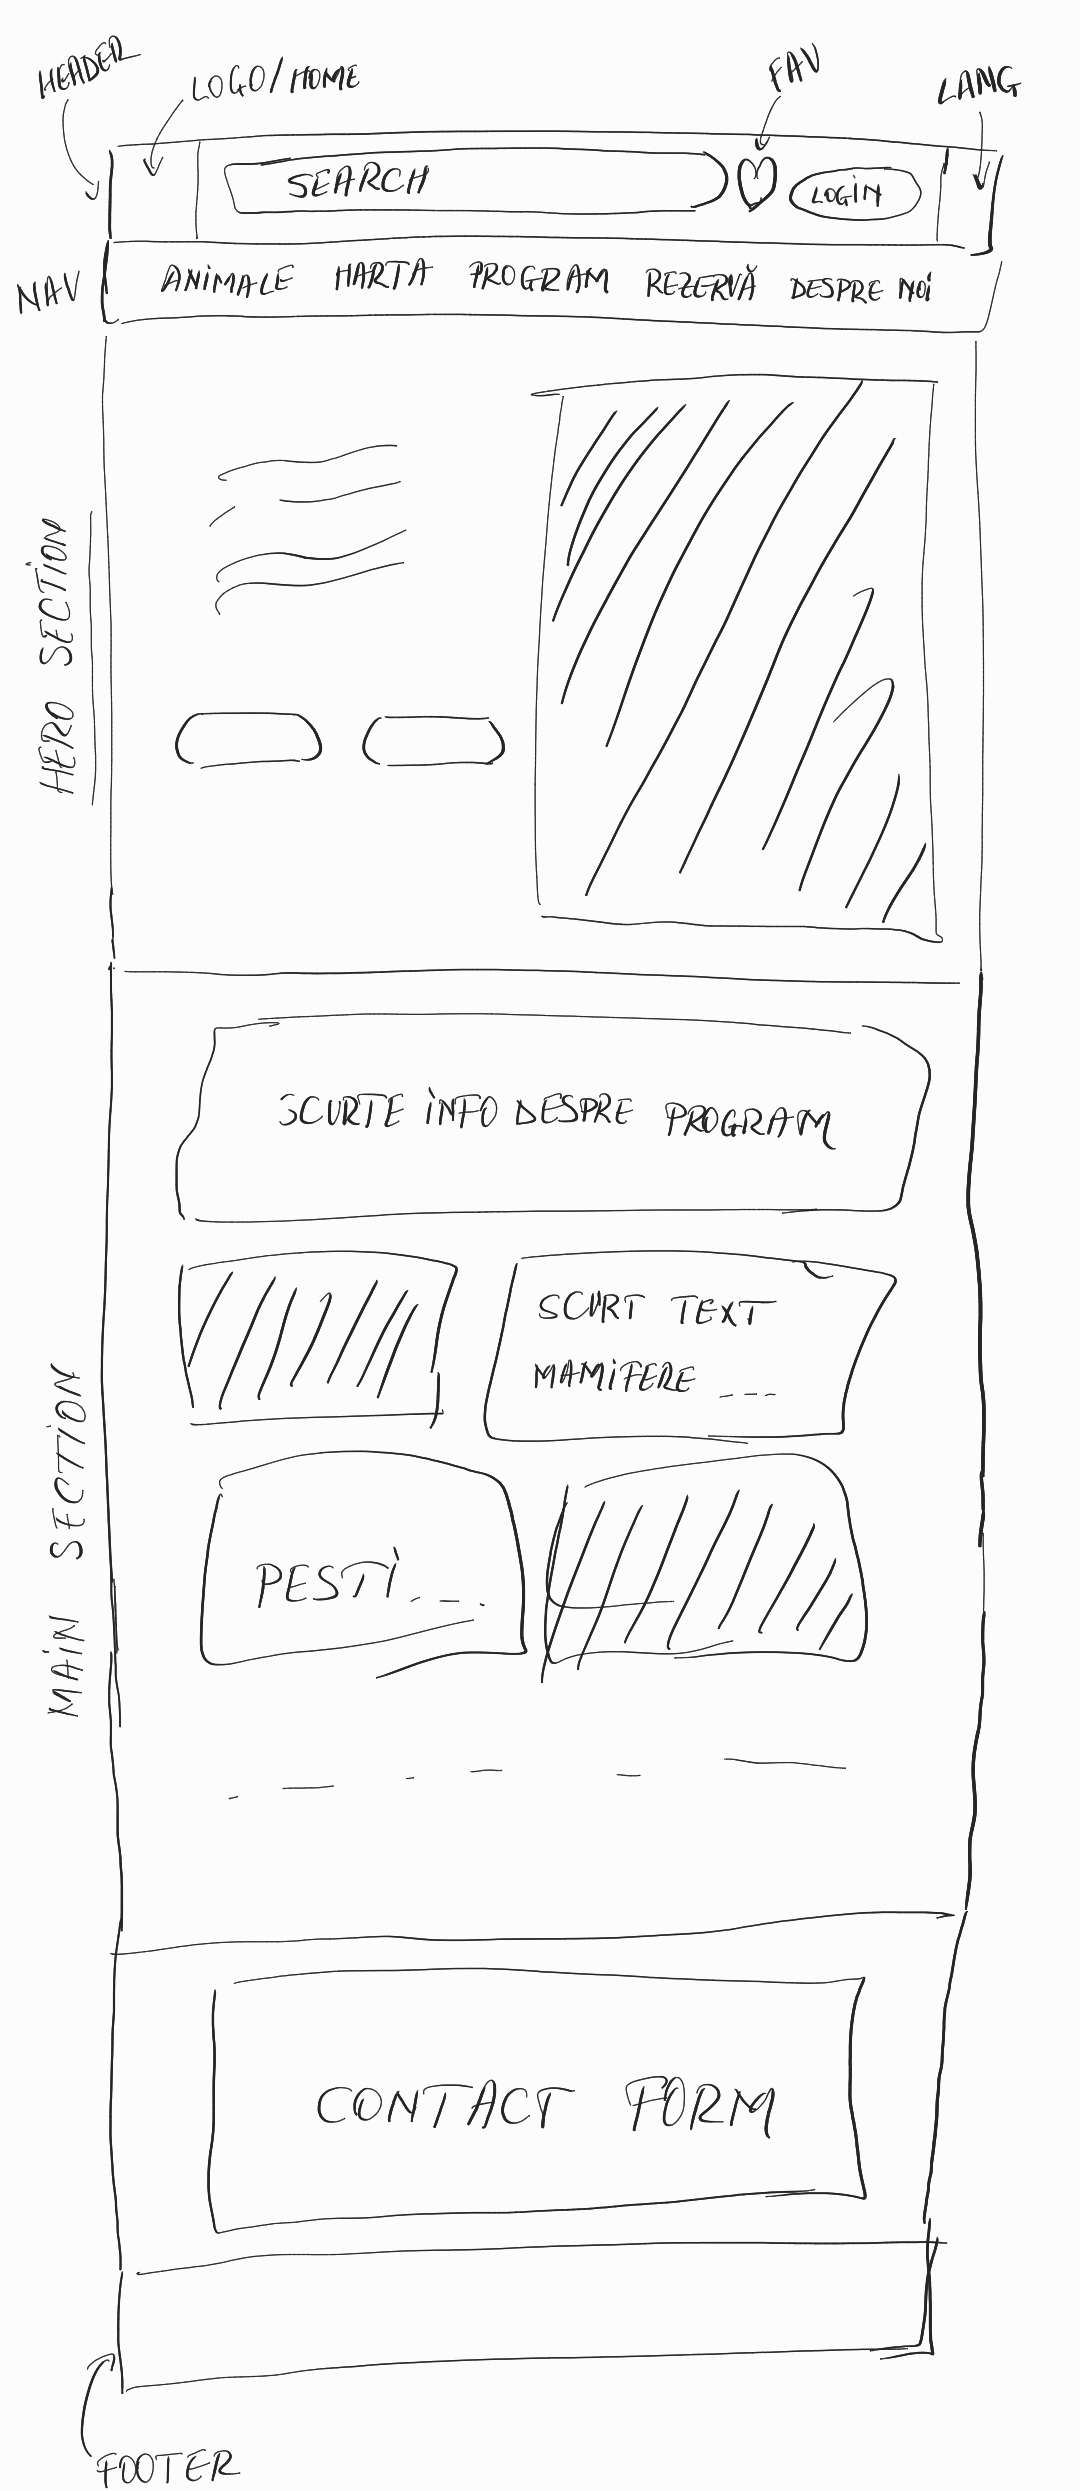 HEADER
LOGO/HOME
FAV
LANG
SEARCH
LOGIN
NAV
ANIMALE HARTA PROGRAM REZERVĂ DESPRE NOI
HERO SECTION
SCURTE INFO DESPRE PROGRAM
SCURT TEXT
MAMIFERE ---
PESTI ---
MAIN SECTION
CONTACT FORM
FOOTER